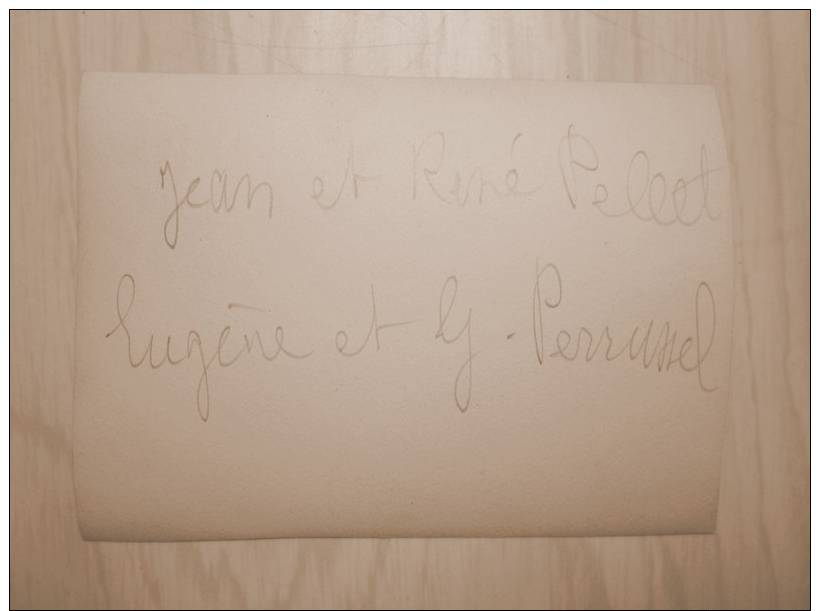 Jean et René Pelleot
Eugène et G. Perrussel